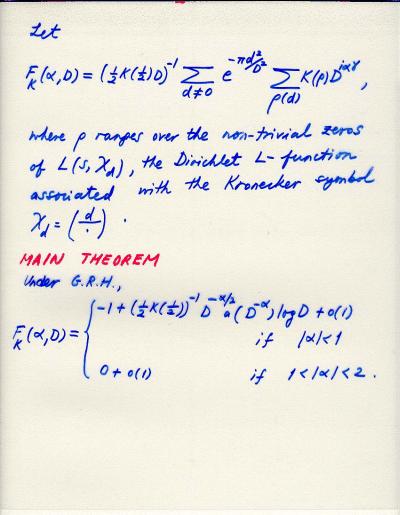 Let
F_K(α,D) = (½K(½)D)^{-1} Σ_{d≠0} e^{-πd²/D²} Σ_{ρ(d)} K(ρ)D^{iαγ},
where ρ ranges over the non-trivial zeros
of L(s,χ_d), the Dirichlet L-function
associated with the Kronecker symbol
χ_d = (d/·).
MAIN THEOREM
Under G.R.H.,
F_K(α,D) = { -1 + (½K(½))^{-1} D^{-α/2} a(D^{-α}) log D + o(1)
if |α|<1
0 + o(1) if 1<|α|<2.